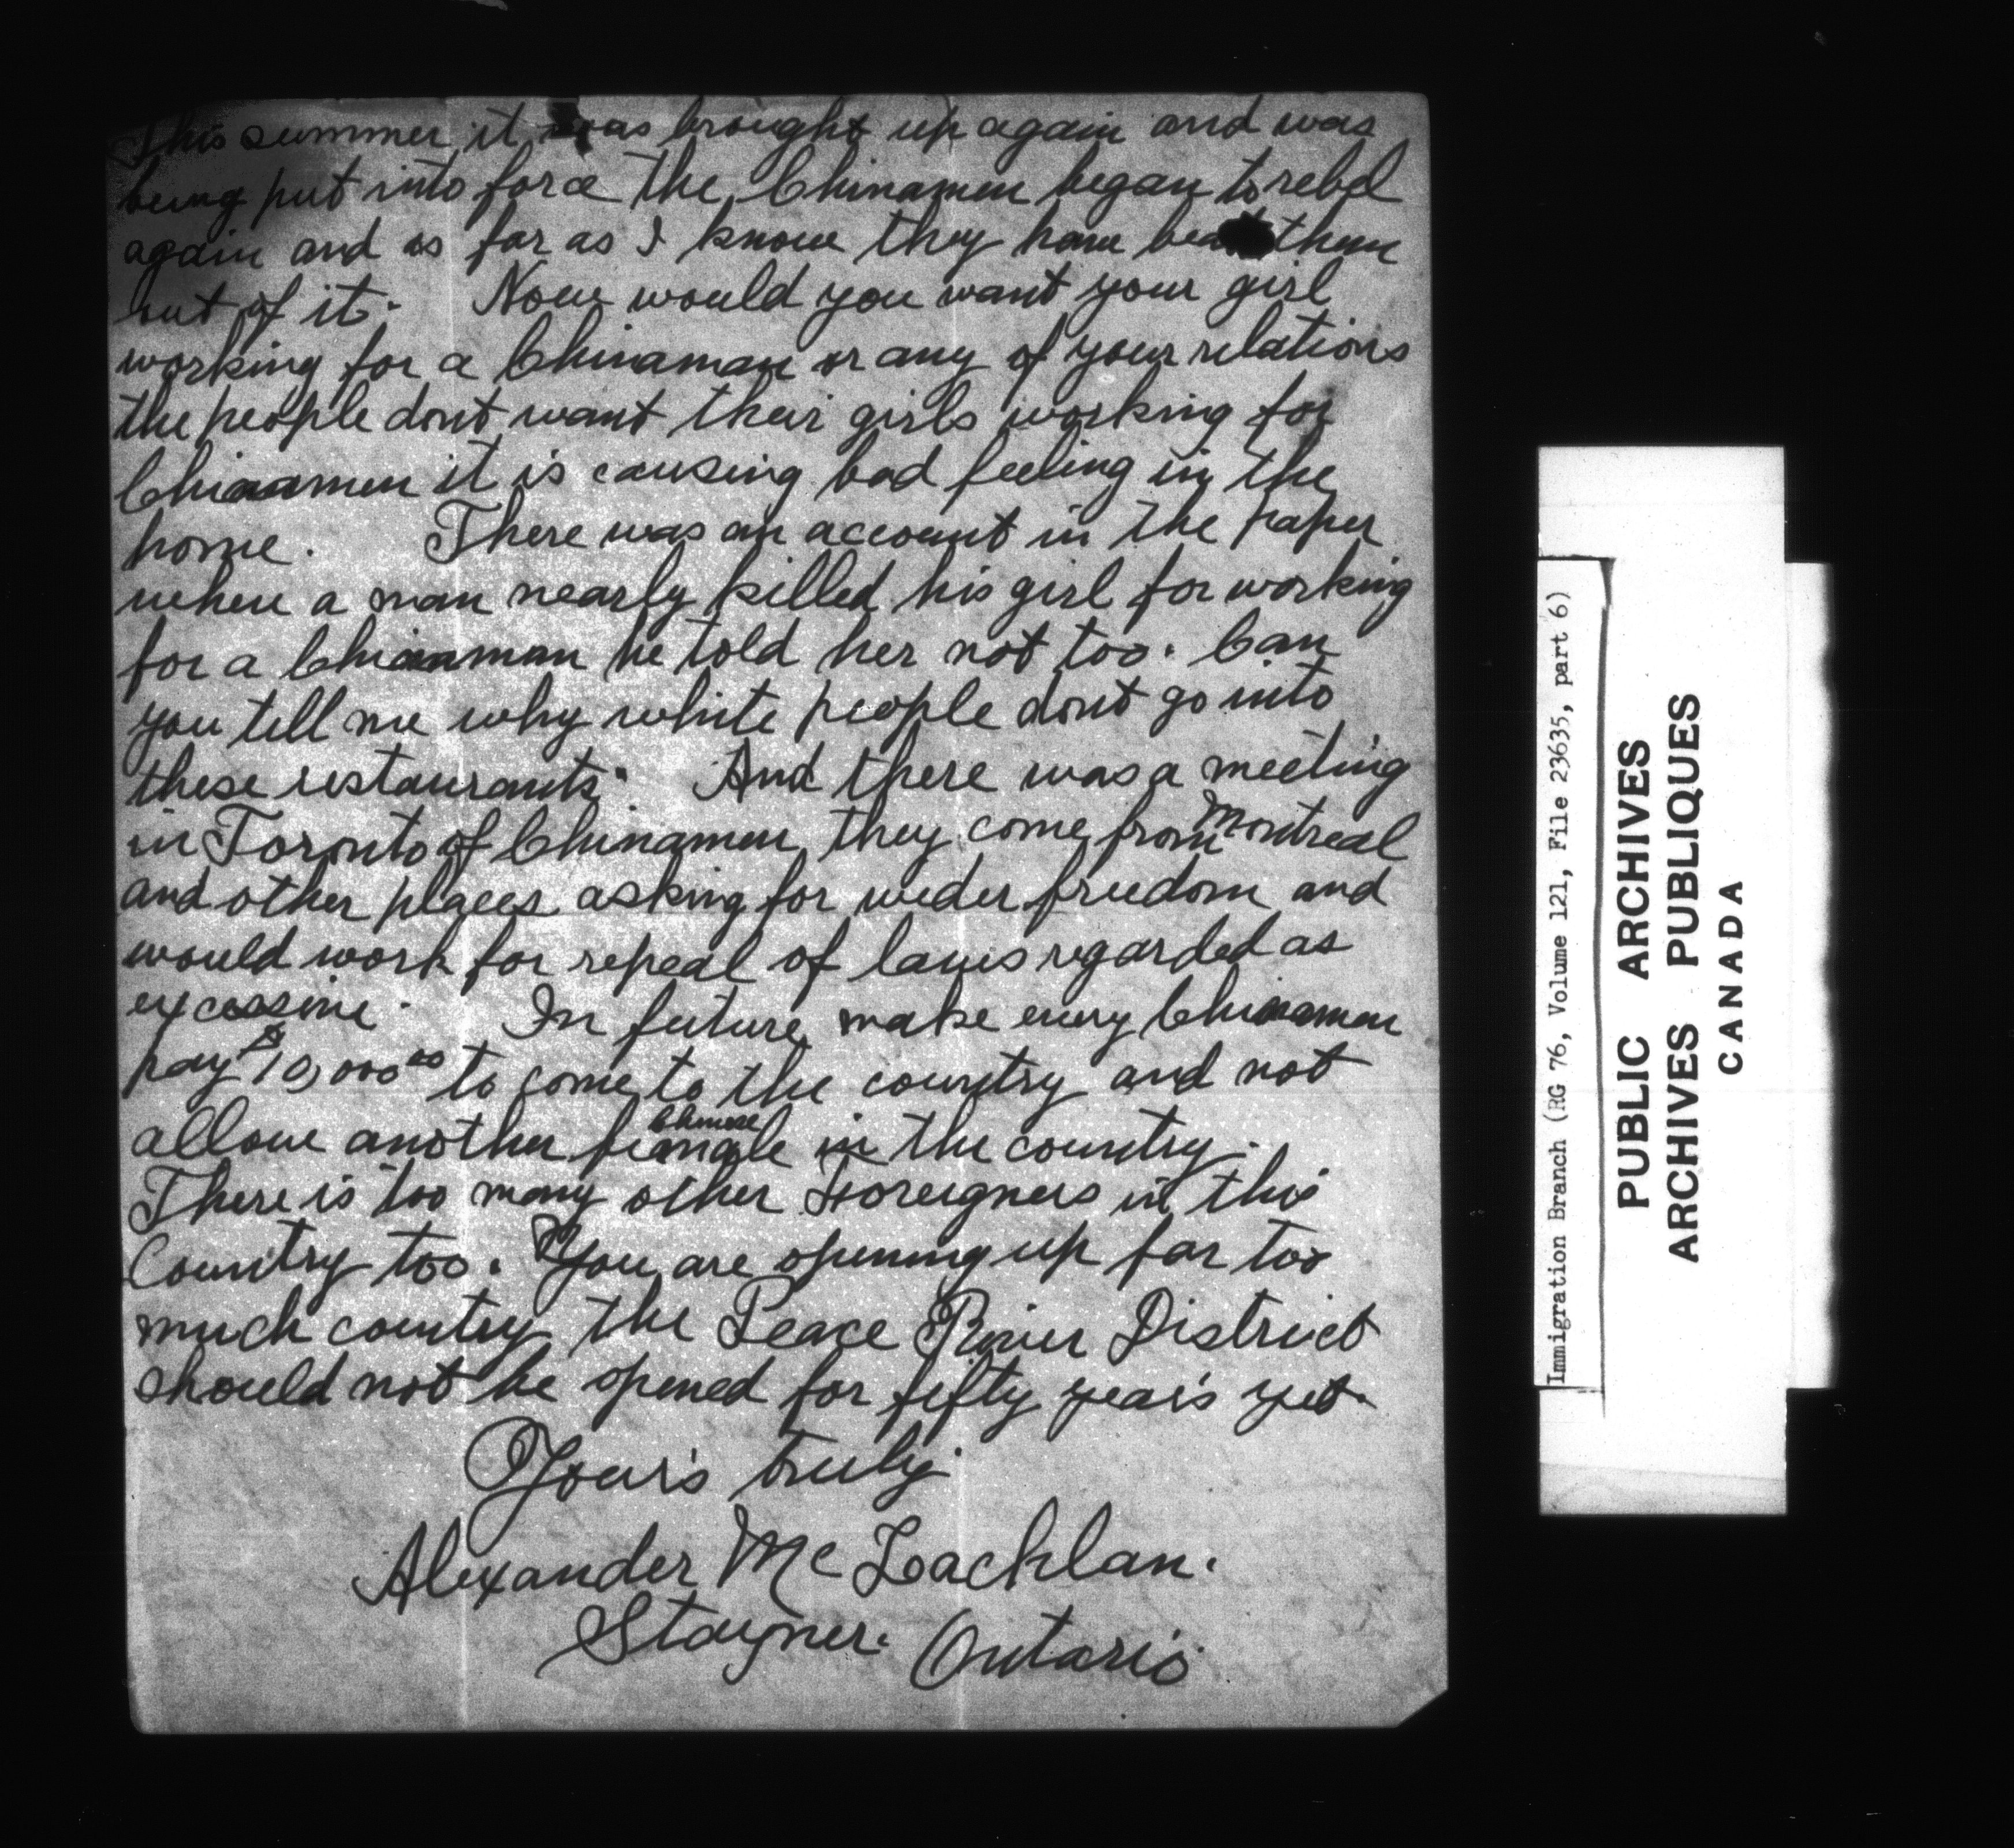 This summer it was brought up again and was
being put into force the Chinamen began to rebel
again and as far as I know they have beat them
out of it. Now would you want your girl
working for a Chinaman or any of your relations
the people dont want their girls working for
Chinamen it is causing bad feeling in the
home. There was an account in the paper
where a man nearly killed his girl for working
for a Chinaman he told her not too. Can
you tell me why white people dont go into
these restaurants. And there was a meeting
in Toronto of Chinamen they come from Montreal
and other places asking for wider freedom and
would work for repeal of laws regarded as
excessive. In future make every Chinaman
pay $10,000 00 to come to the country and not
allow another Chinese female in the country.
There is too many other Foreigners in this
Country too. You are opening up far too
much country the Peace River District
should not be opened for fifty year's yet.
Your's truly
Alexander McLachlan.
Stayner. Ontario
Immigration Branch (RG 76, Volume 121, File 23635, part 6)
PUBLIC ARCHIVES
ARCHIVES PUBLIQUES
CANADA